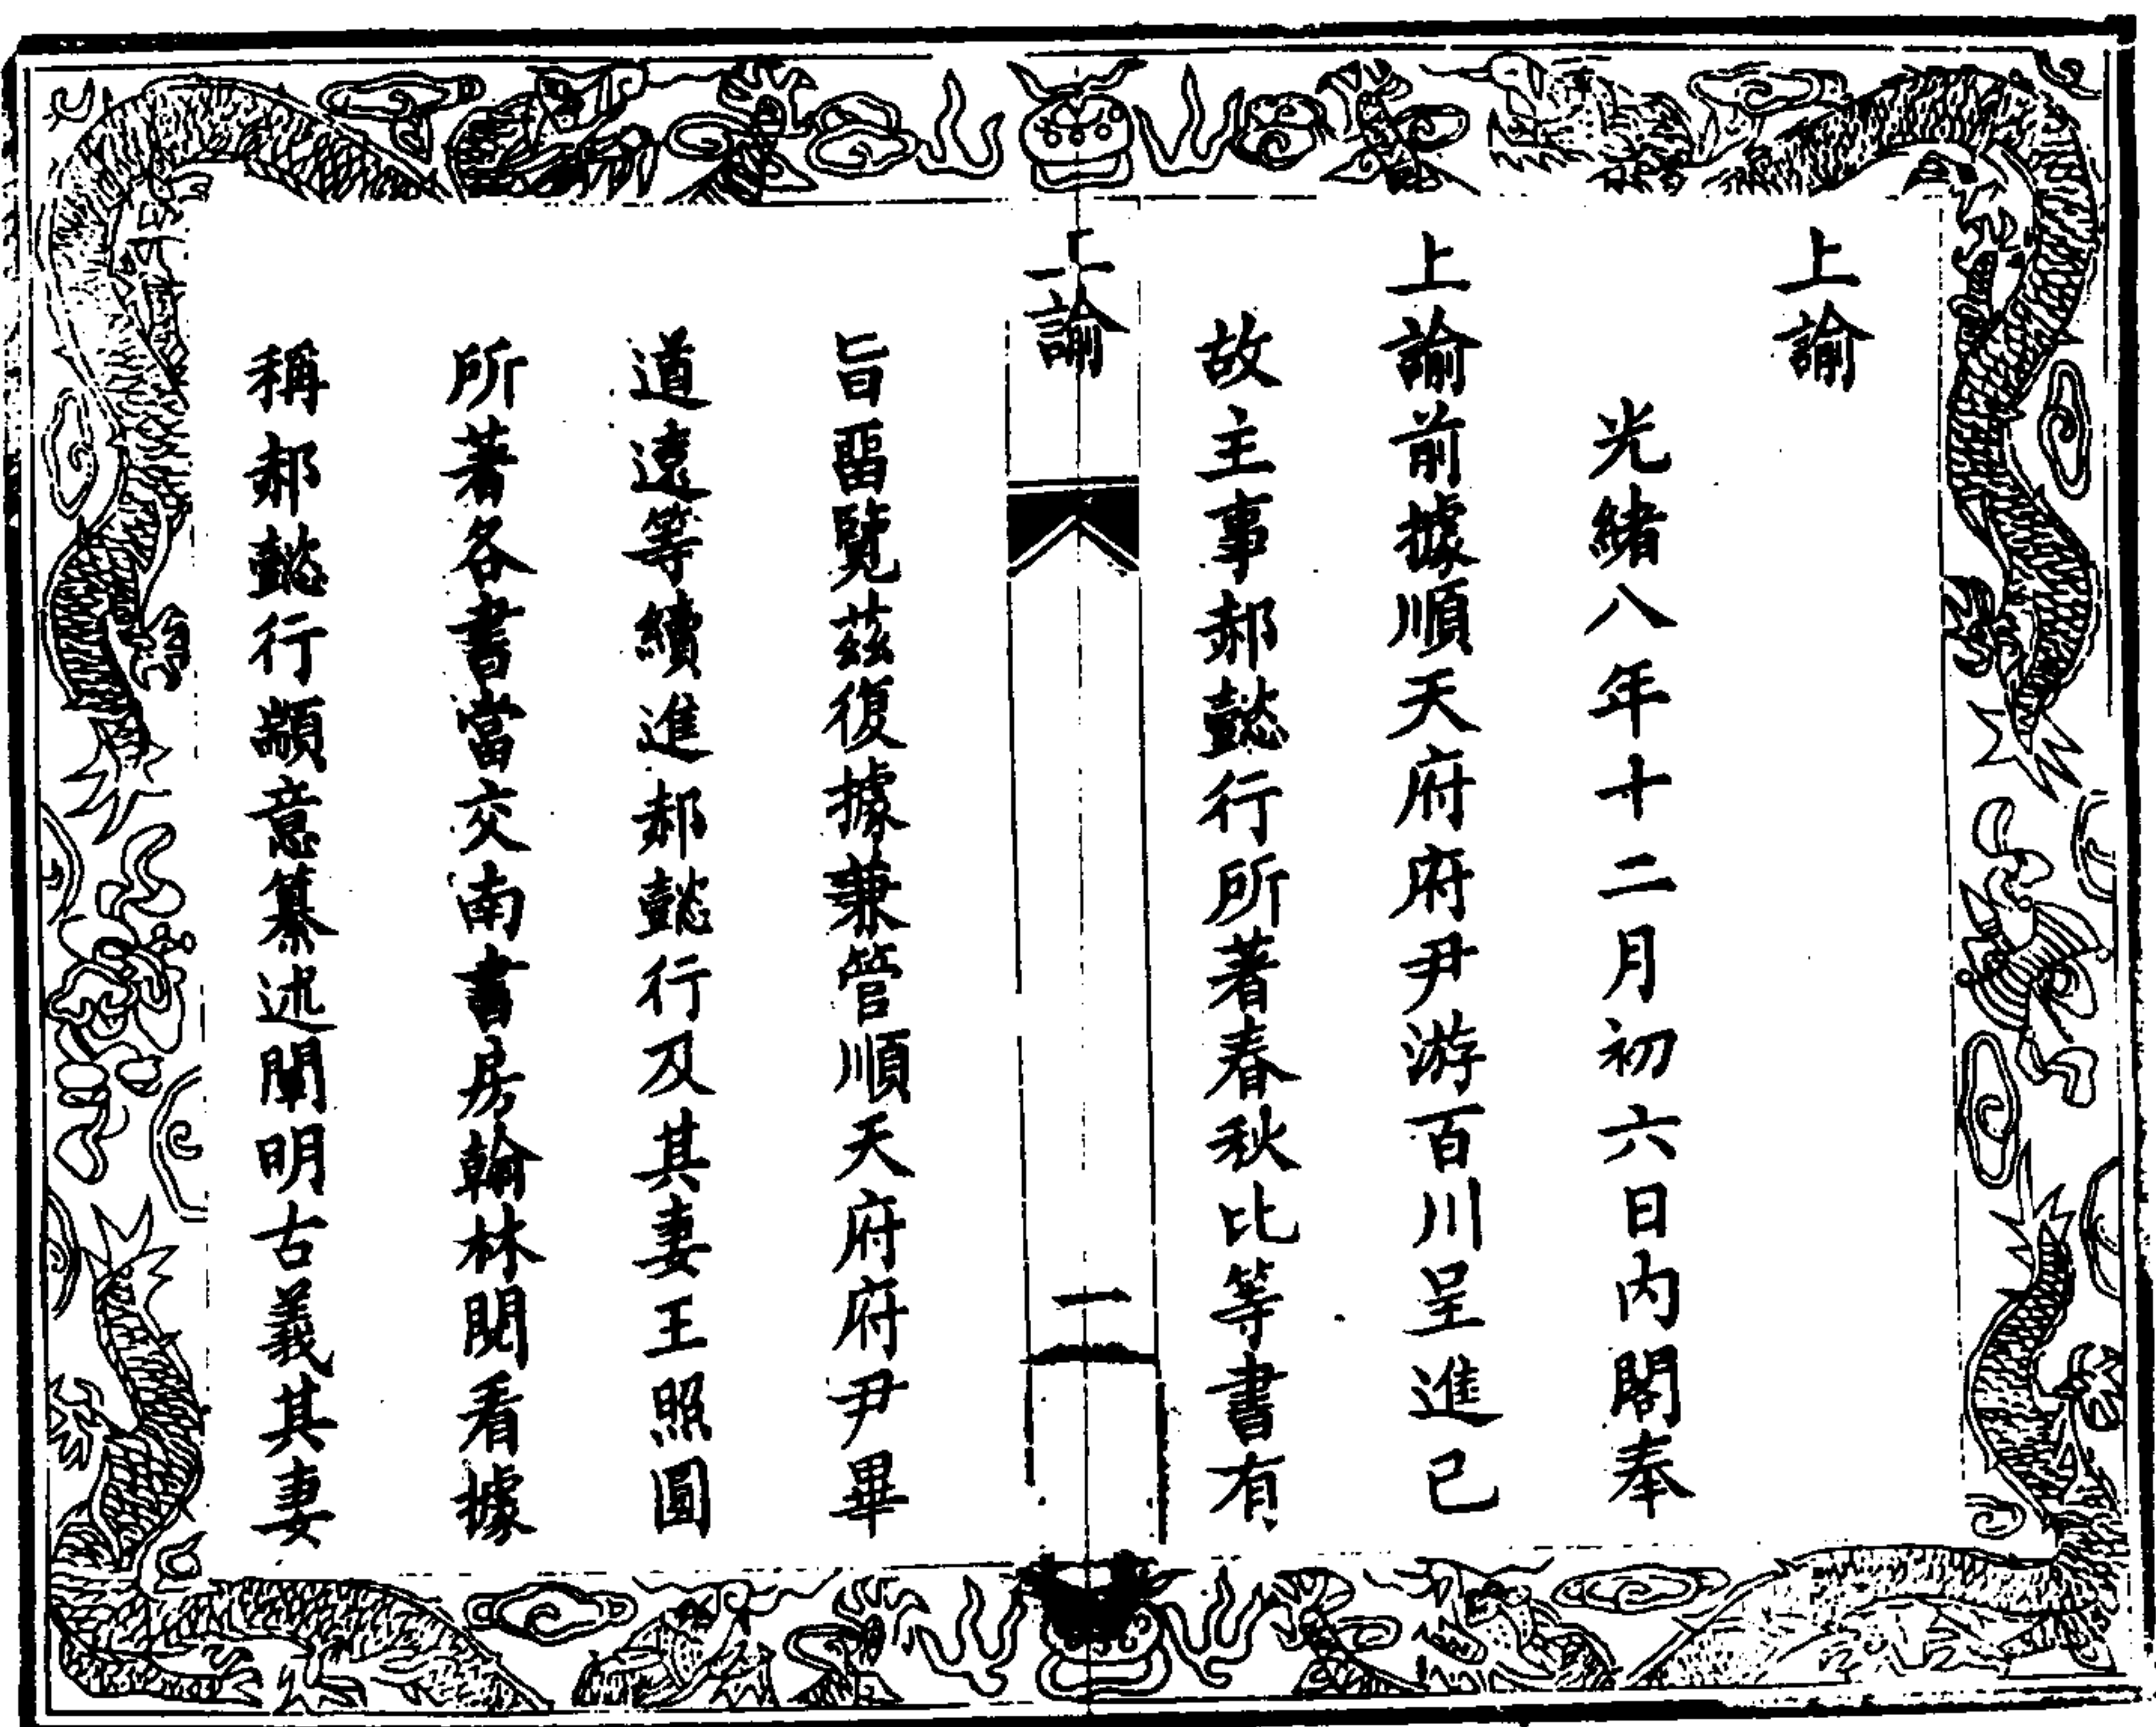 上諭
光緒八年十二月初六日內閣奉
上諭前據順天府府尹游百川呈進已
故主事郝懿行所著春秋比等書有
上諭
一
旨畱覽茲復據兼管順天府府尹畢
道遠等續進郝懿行及其妻王照圓
所著各書當交南書房翰林閱看據
稱郝懿行顓意纂述闡明古義其妻